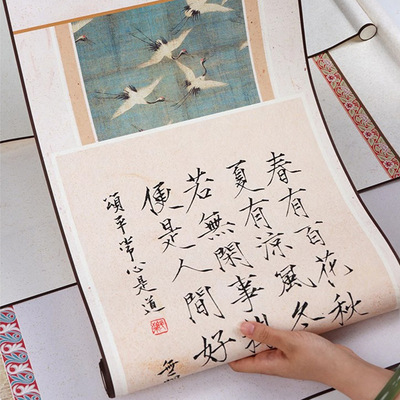 春有百花秋
夏有涼風冬
若無閑事
便是人間好
頌平常心是道
無